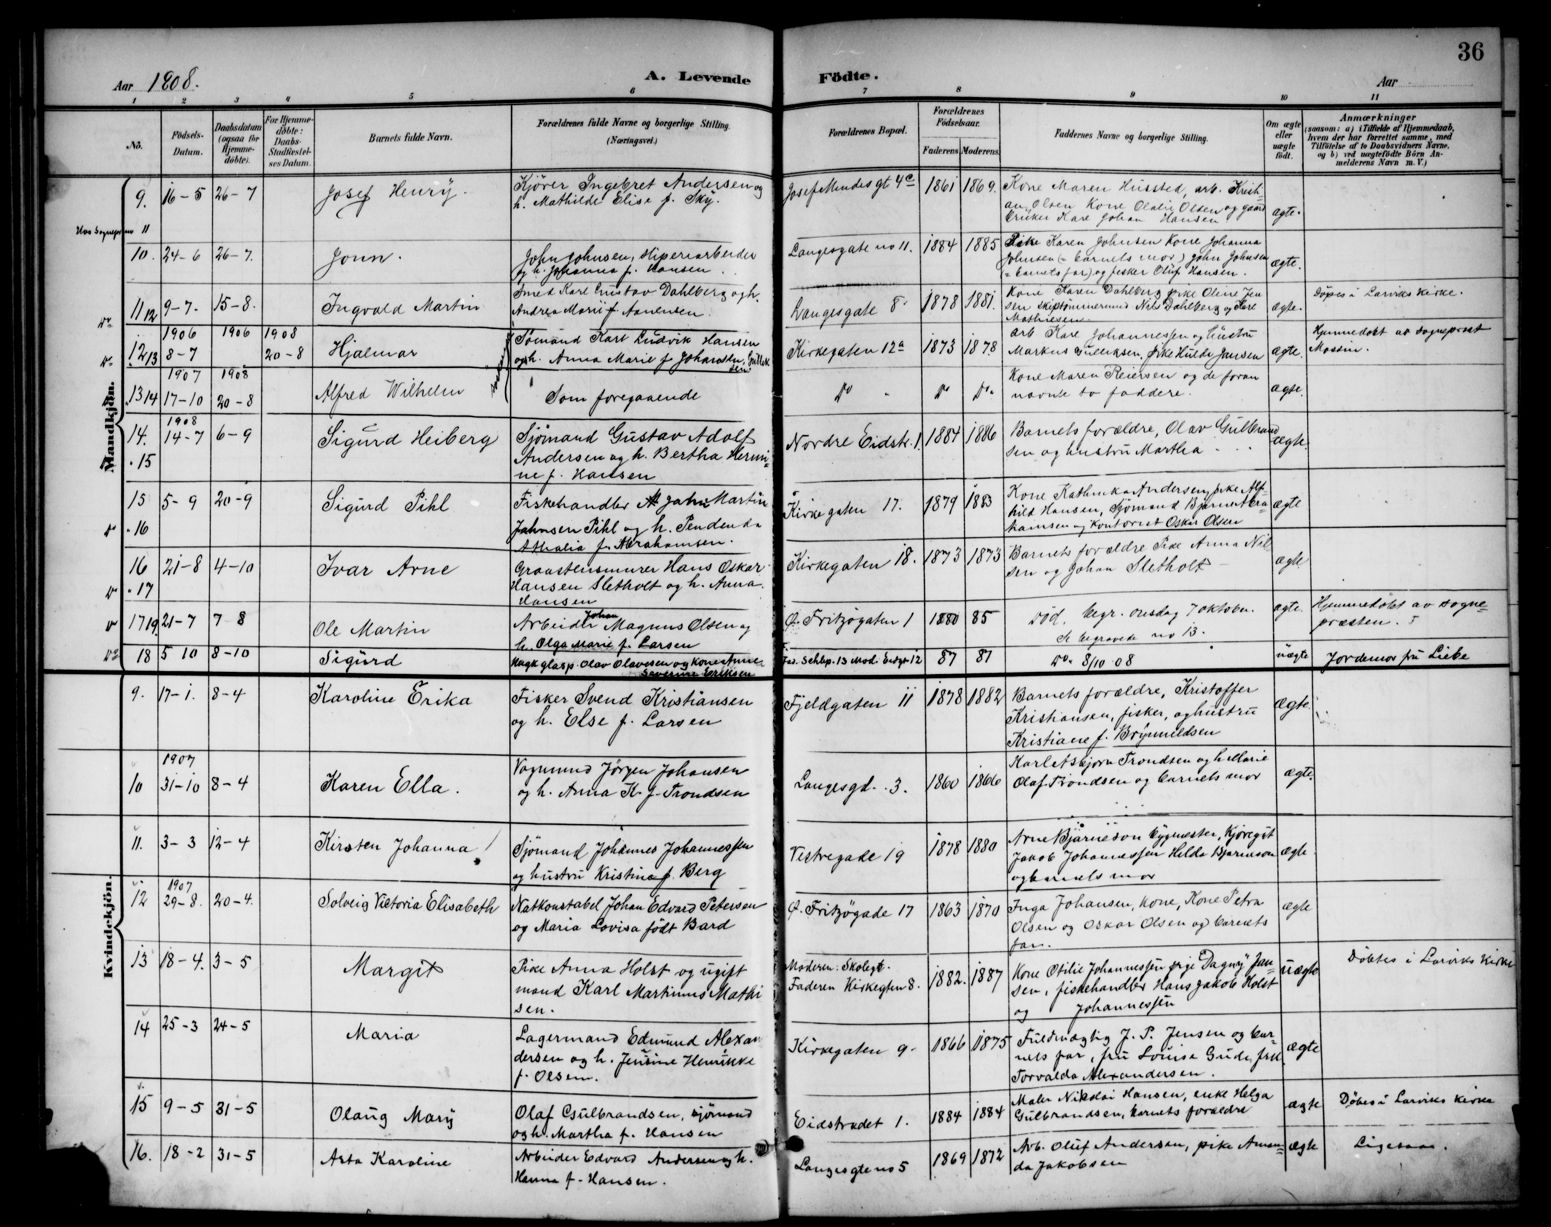 36
Aar 1908.
A. Levende Födte.
Aar
1 2 3 4 5 6 7 8 9 10 11
No.
Födsels-Datum.
Daabsdatum (ogsaa for Hjemme-döbte).
For Hjemme-döbte: Daabs-Stadfæstel-ses Datum.
Barnets fulde Navn.
Forældrenes fulde Navne og borgerlige Stilling. (Næringsvei.)
Forældrenes Bopæl.
Forældrenes Födselsaar.
Faderens. Moderens.
Faddernes Navne og borgerlige Stilling.
Om ægte eller uægte födt.
Anmærkninger (saasom: a) i Tilfælde af Hjemmedaab, hvem der har forrettet samme, med Tilföielse af to Daabsvidners Navne, og b) ved uægtefödte Börn An-melderens Navn m. V.)
Mandkjön.
9. 16-5 26-7 Josef Henry. Kjører Ingebret Andersen og h. Mathilde Elise f. Sky. Josef Mendes gt 4c 1861 1869. Kone Maren Hussted, arb. Kristian Olsen Kone Olalie Olsen og Kare Johan Hansen ægte.
11
10. 24-6 26-7. John. John Johnsen, og h. Johanna f. Hansen. Langesgate no 11. 1884 1885 Pike Karen Johnsen Kone Johanna Johnsen (= barnets mor) John Johnsen (= barnets far) og fisker Oluf Hansen. ægte.
11 12 9-7. 15-8. Ingvald Martin Karl Gustav Dahlberg og h. Andrea Marie f. Langesgate 8 1878 1881. Kone Karen Dahlberg pike Oline Jensen Nils Dahlberg og Kare Mathiesen ægte. Døpes i Larviks kirke.
12 13 1906 8-7 1906 1908 20-8 Hjalmar Sømand Karl Ludvik Hansen og h. Anna Marie f. Kirkegaten 12a 1873 1878 arb Kare Johannessen og hustru Markus Gulliksen, pike Hulda Jensen ægte. Hjemmedøbt av sogneprest Mossin.
13 14 1907 17-10 1908 20-8 Alfred Wilhelm Som foregaaende Do Do Do Kone Maren Reiersen og de foran nævnte to faddere. ægte
14. 15 1908 14-7 6-9 Sigurd Heiberg Sjømand Gustav Adolf Andersen og h. Bertha Hermine f. Hansen Nordre Eidstr. 1 1884 1886 Barnets forældre, Olav Gulbrandsen og hustru Martha ægte.
15 16 5-9 20-9 Sigurd Pihl Fiskehandler John Martin Johnsen Pihl og h. Athalia f. Abrahamsen. Kirkegaten 17. 1879 1883 Kone Kathinka Andersen, pike Alfhild Hansen, Sjømand Bjarne Abrahamsen og kontorist Oskar Olsen ægte
16 17 21-8 4-10 Ivar Arne Graastensmurer Hans Oskar Hansen Sletholt og h. Anna Hansen Kirkegaten 18. 1873 1873 Barnets forældre Pike Anna Nilsen og Johan Sletholt ægte
17 19 21-7 7 8 Ole Martin Arbeider Johan Magnus Olsen og h. Olga Marie f. Larsen Ø. Fritzøgaten 1 1880 85 Død. begr. onsdag 7 oktober. Se begravede no 13. ægte. Hjemmedøbt av sognepræsten.
18 5 10 8-10 Sigurd Olav Olavesen og Kone Anne Severine Eriksen Fad. Schlep. 13 Mod. Eidsgt 12 87 81 Do 8/10 08 uægte Jordemor fru Liebe
Kvindekjön.
9. 17-1. 8-4 Karoline Erika Fisker Svend Kristiansen og h. Else f. Larsen Fjeldgaten 11 1878 1882 Barnets forældre, Kristoffer Kristiansen, fisker, og hustru Kristiane f. Brynnildsen ægte.
10 1907 31-10 8-4 Karen Ella. Vognmand Jørgen Johansen og h. Anna K. f. Trondsen Langesgd. 3. 1860 1866 Karl Asbjørn Trondsen og h. Marie Olaf Trondsen og barnets mor ægte.
11. 3-3 12-4 Kirsten Johanna Sjømand Johannes Johannessen og hustru Kristina f. Berg Vestregade 19 1878 1880 Arne Bjarneson bygmester, Kjøregut Jakob Johannessen Helda Bjarneson og barnets mor ægte.
12 1907 29-8. 20-4. Solveig Victoria Elisabeth Natkonstabel Johan Edvard Petersen og Maria Lovisa født Bard Ø. Fritzøgade 17 1863 1870 Inga Johansen, kone, Kone Petra Olsen og Oskar Olsen og barnets far. ægte
13 18-4. 3-5 Margit Pike Anna Holst og ugift mand Karl Martinius Mathisen. Moderen: Skolegt. Faderen Kirkegten 8. 1882. 1887 Kone Otilie Johannessen pige Dagny Jansen, fiskehandler Hans Jakob Holst og Johannessen uægte Døbtes i Larviks Kirke
14 25-3 24-5 Maria Lagermand Edmund Alexandersen og h. Jensine Henrikke f. Olsen. Kirkegaten 9. 1866 1875 Fuldmægtig J. P. Jensen og barnets far, fru Lovisa Gude, frk Torvalda Alexandersen. ægte.
15 9-5 31-5 Olaug Mary Olaf Gulbrandsen, sjømand og h. Martha f. Hansen Eidstrødet 1. 1884 1884 Maler Nikolai Hansen, enke Helga Gulbrandsen, barnets forældre ægte Døbes i Larviks kirke
16. 18-2 31-5 Asta Karoline Arbeider Edvard Andersen og h. Hanna f. Hansen. Langesgte no 5 1869 1872 Arb. Oluf Andersen, pike Amanda Jakobsen ægte Ligesaa.